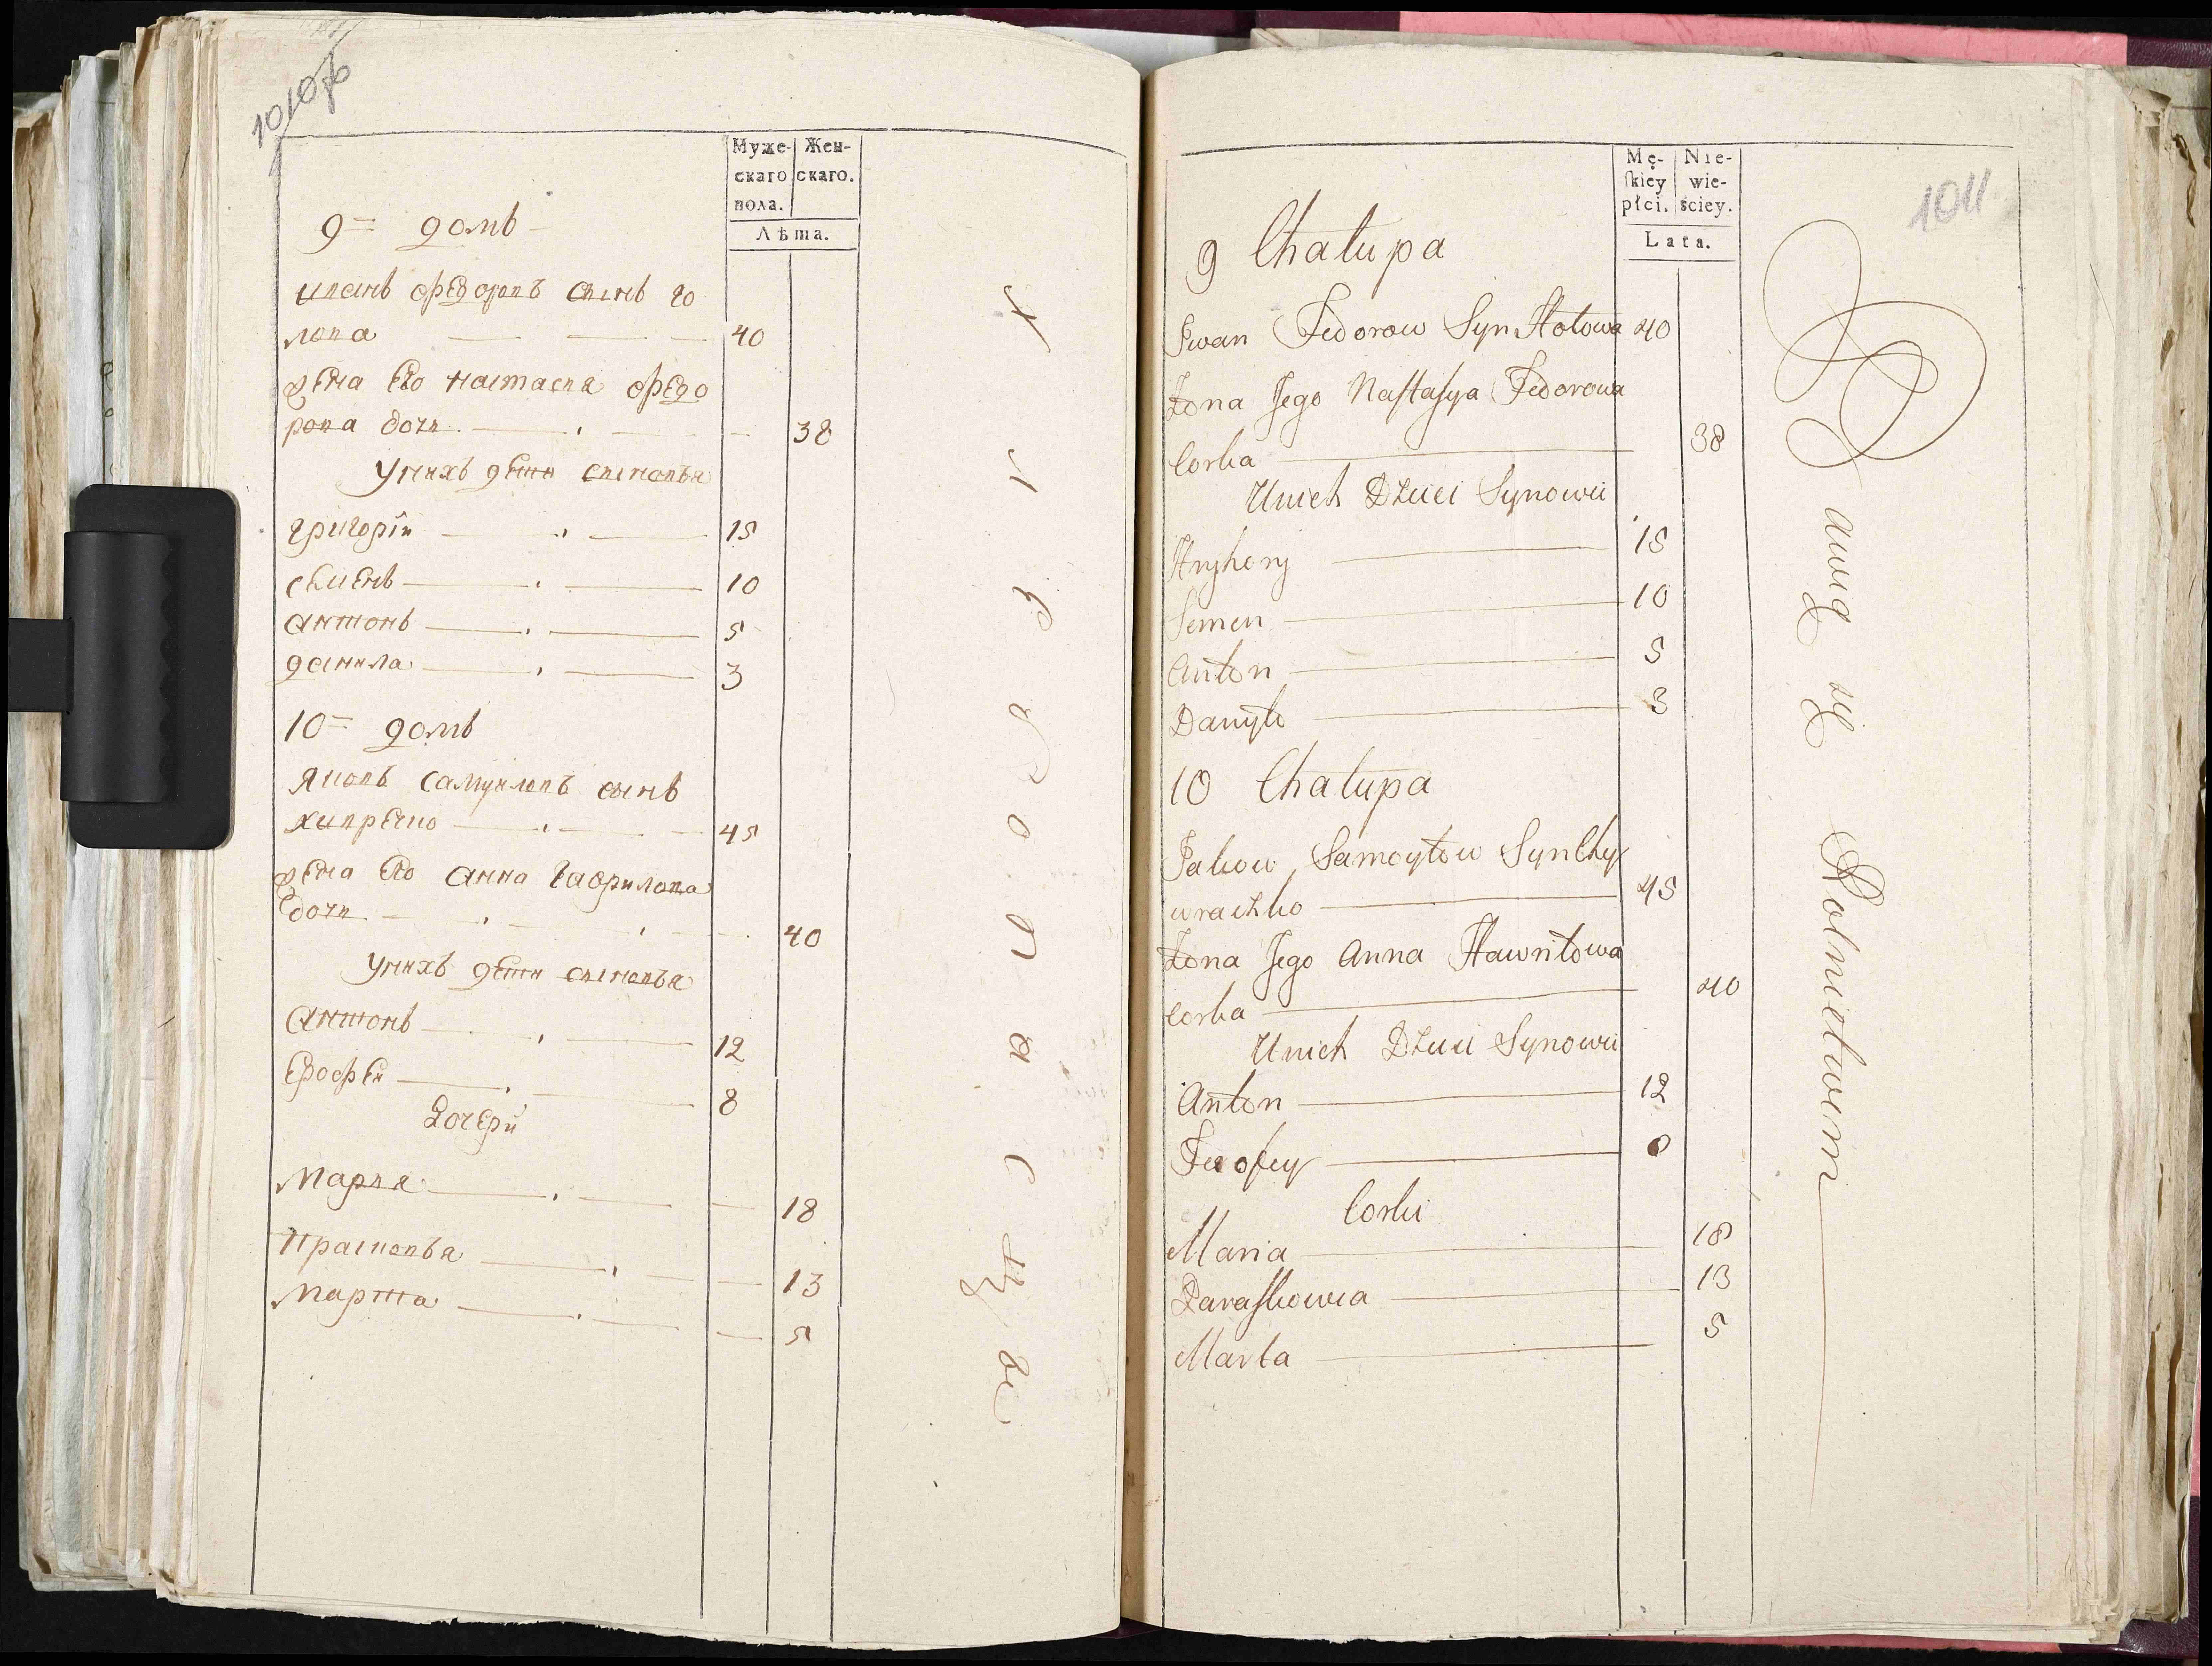 1010об
Муже-
скаго
пола.
Жен-
скаго.
Лѣта.
9= домъ
иванъ федоровъ сынъ го
лова 40
жена его настасея федо
рова дочь 38
у нихъ дети сыновья
григорїи 15
семенъ 10
антонъ 5
данила 3
10= домъ
яковъ самуиловъ сынъ
хивречко 45
жена его анна гаврилова
дочь 40
у нихъ дети сыновья
антонъ 12
ерофеи 8
дочери
марея 18
прасковья 13
марта 5
1011
Mę-
ſkiey
płci.
Nie-
wie-
ściey.
Lata.
9 Chałupa
Iwan Fedorow Syn Hołowa 40
Żona Jego Naſtaſya Fedorowa
Corka 38
U nich Dzieci Synowie
Hryhory 15
Semen 10
Anton 5
Danyło 3
10 Chałupa
Jakow Samoyłow Syn Chy
wraczko 45
Żona Jego Anna Hawryłowa
Corka 40
U nich Dzieci Synowie
Anton 12
Jerofey 8
Corki
Maria 18
Paraſkowia 13
Marta 5
Bawią się Rolnictwem